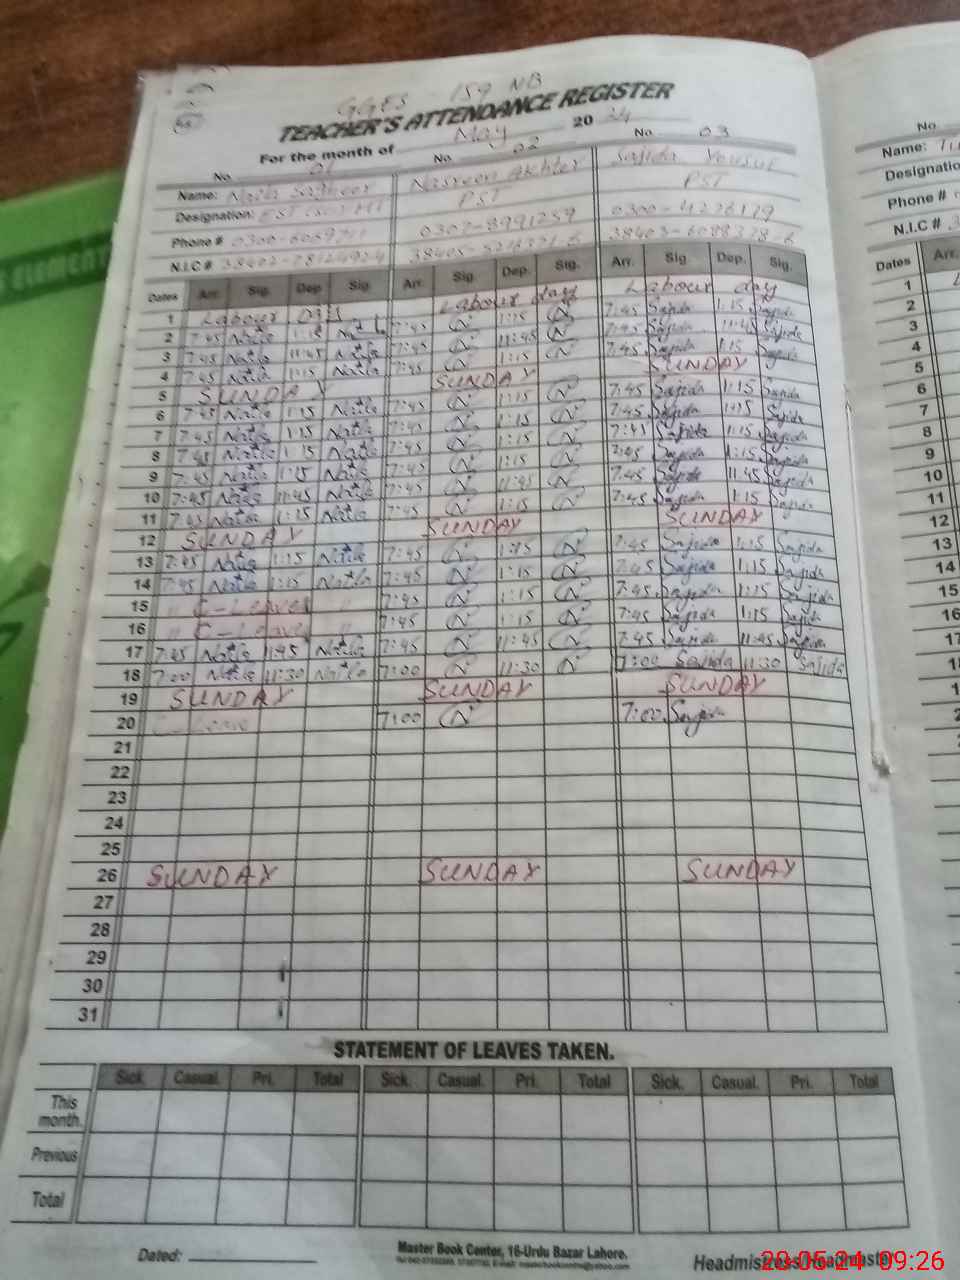 GGES - 159 NB
TEACHER'S ATTENDANCE REGISTER
For the month of May 2024
No 01 No 02 No. 03
Name: Naila Sagheer Nasreen Akhter Sajida Yousuf
Designation: EST PST PST
Phone # 0300- 0307-8991259 0300-4226179
N.I.C # 38403-6088328-6
Dates Arr. Sig. Dep. Sig. Arr. Sig. Dep. Sig. Arr. Sig. Dep. Sig.
1 Labour Day Labour day Labour day
2 7:45 Naila 1:15 Naila 7:45 N 1:15 N 7:45 Sajida 1:15 Sajida
3 7:45 Naila 11:45 Naila 7:45 N 11:45 N 7:45 Sajida 11:45 Sajida
4 7:45 Naila 1:15 Naila 7:45 N 1:15 N 7:45 Sajida 1:15 Sajida
5 SUNDAY SUNDAY SUNDAY
6 7:45 Naila 1:15 Naila 7:45 N 1:15 N 7:45 Sajida 1:15 Sajida
7 7:45 Naila 1:15 Naila 7:45 N 1:15 N 7:45 Sajida 1:15 Sajida
8 7:45 Naila 1:15 Naila 7:45 N 1:15 N 7:45 Sajida 1:15 Sajida
9 7:45 Naila 1:15 Naila 7:45 N 1:15 N 7:45 Sajida 1:15 Sajida
10 7:45 Naila 11:45 Naila 7:45 N 11:45 N 7:45 Sajida 11:45 Sajida
11 7:45 Naila 1:15 Naila 7:45 N 1:15 N 7:45 Sajida 1:15 Sajida
12 SUNDAY SUNDAY SUNDAY
13 7:45 Naila 1:15 Naila 7:45 N 1:15 N 7:45 Sajida 1:15 Sajida
14 7:45 Naila 1:15 Naila 7:45 N 1:15 N 7:45 Sajida 1:15 Sajida
15 " C-Leave " 7:45 N 1:15 N 7:45 Sajida 1:15 Sajida
16 " C-Leave " 7:45 N 1:15 N 7:45 Sajida 1:15 Sajida
17 7:45 Naila 11:45 Naila 7:45 N 11:45 N 7:45 Sajida 11:45 Sajida
18 7:00 Naila 11:30 Naila 7:00 N 11:30 N 7:00 Sajida 11:30 Sajida
19 SUNDAY SUNDAY SUNDAY
20 C-Leave 7:00 N 7:00 Sajida
21
22
23
24
25
26 SUNDAY SUNDAY SUNDAY
27
28
29
30
31
STATEMENT OF LEAVES TAKEN.
Sick. Casual. Pri. Total Sick. Casual. Pri. Total Sick. Casual. Pri. Total
This month.
Previous
Total
Dated:
Master Book Center, 16-Urdu Bazar Lahore.
Headmistress/Headmaster
No.
Name:
Designation
Phone #
N.I.C #
Dates Arr.
1
2
3
4
5
6
7
8
9
10
11
12
13
14
15
16
17
28-05-24 09:26